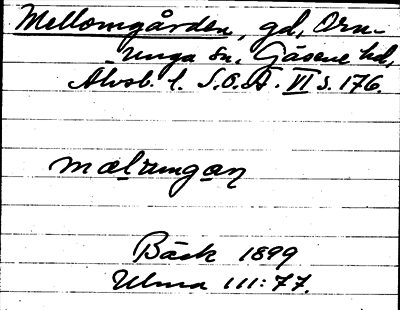 Mellomgården, gd, Orn-
unga sn, Gäsene hd,
Älvsb. l. S.O.Ä. VI s. 176.
Bäck 1899
Ulma 111:77.